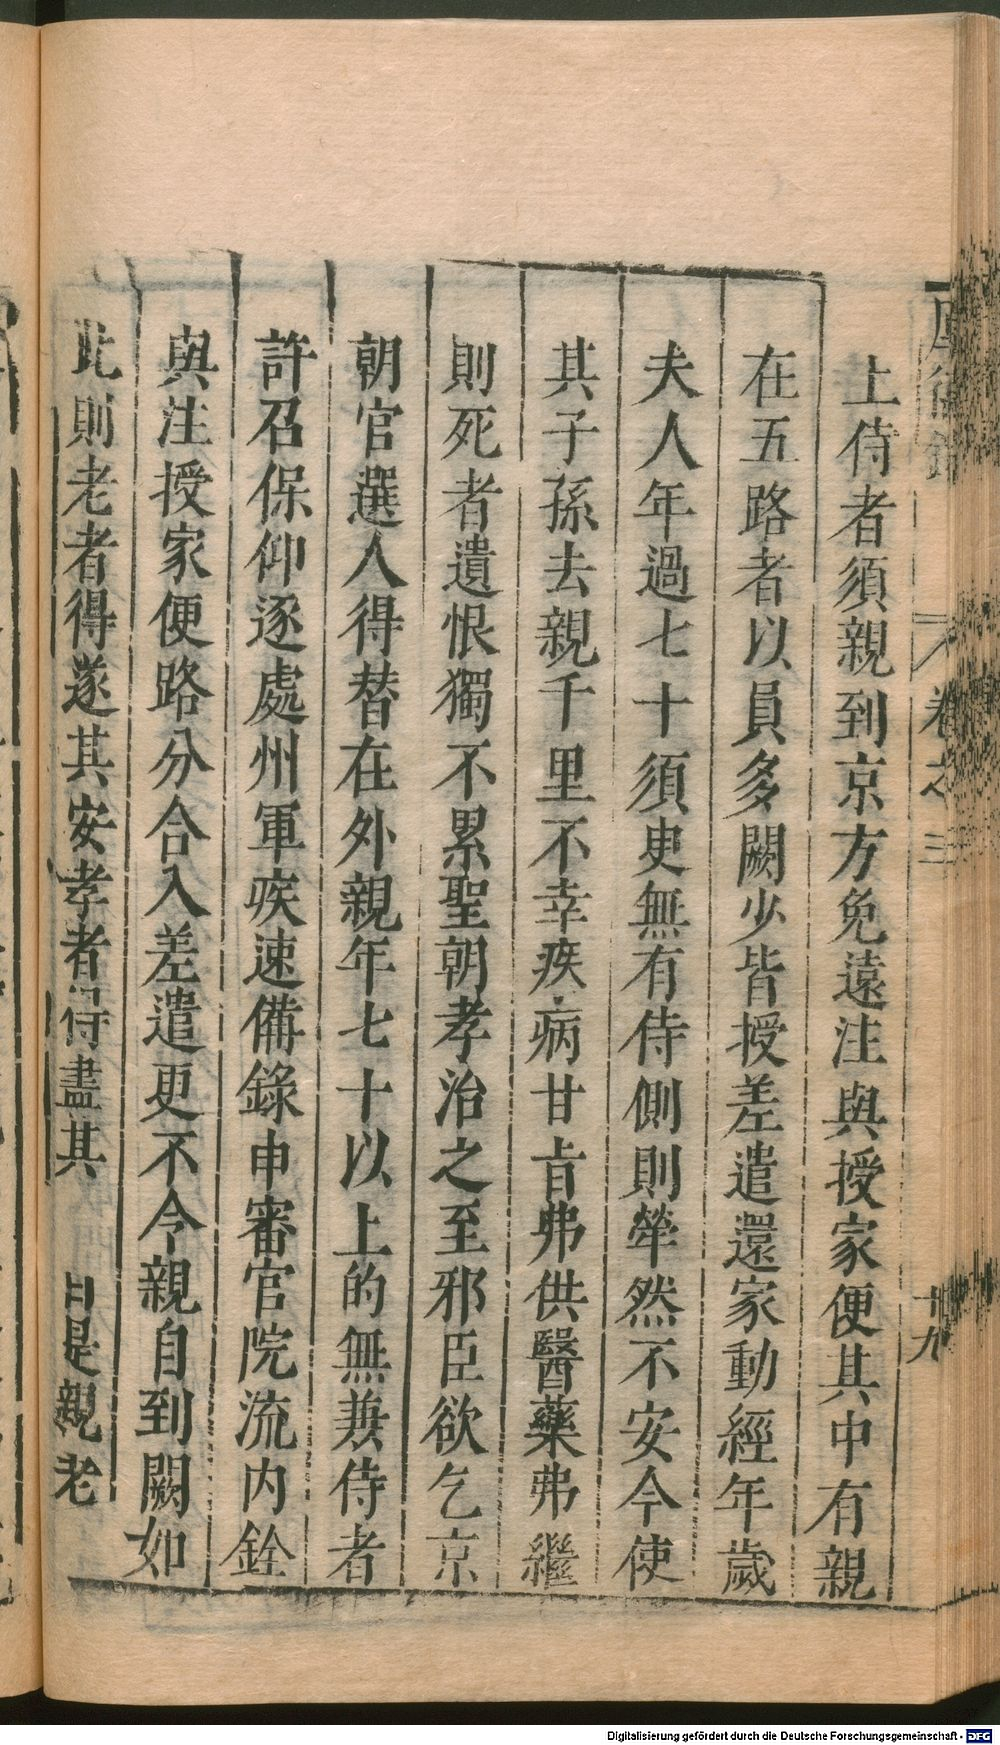 卷之三
十九
上侍者須親到京方免遠注與授家便其中有親
在五路者以員多闕少皆授差遣還家動經年歲
夫人年過七十須更無有侍側則犖然不安今使
其子孫去親千里不幸疾病甘旨弗供醫藥弗繼
則死者遺恨獨不累聖朝孝治之至邪臣欲乞京
朝官選人得替在外親年七十以上的無兼侍者
許召保仰逐處州軍疾速備錄申審官院流内銓
與注授家便路分合入差遣更不令親自到闕如
此則老者得遂其安孝者得盡其
是親老
Digitalisierung gefördert durch die Deutsche Forschungsgemeinschaft - DFG